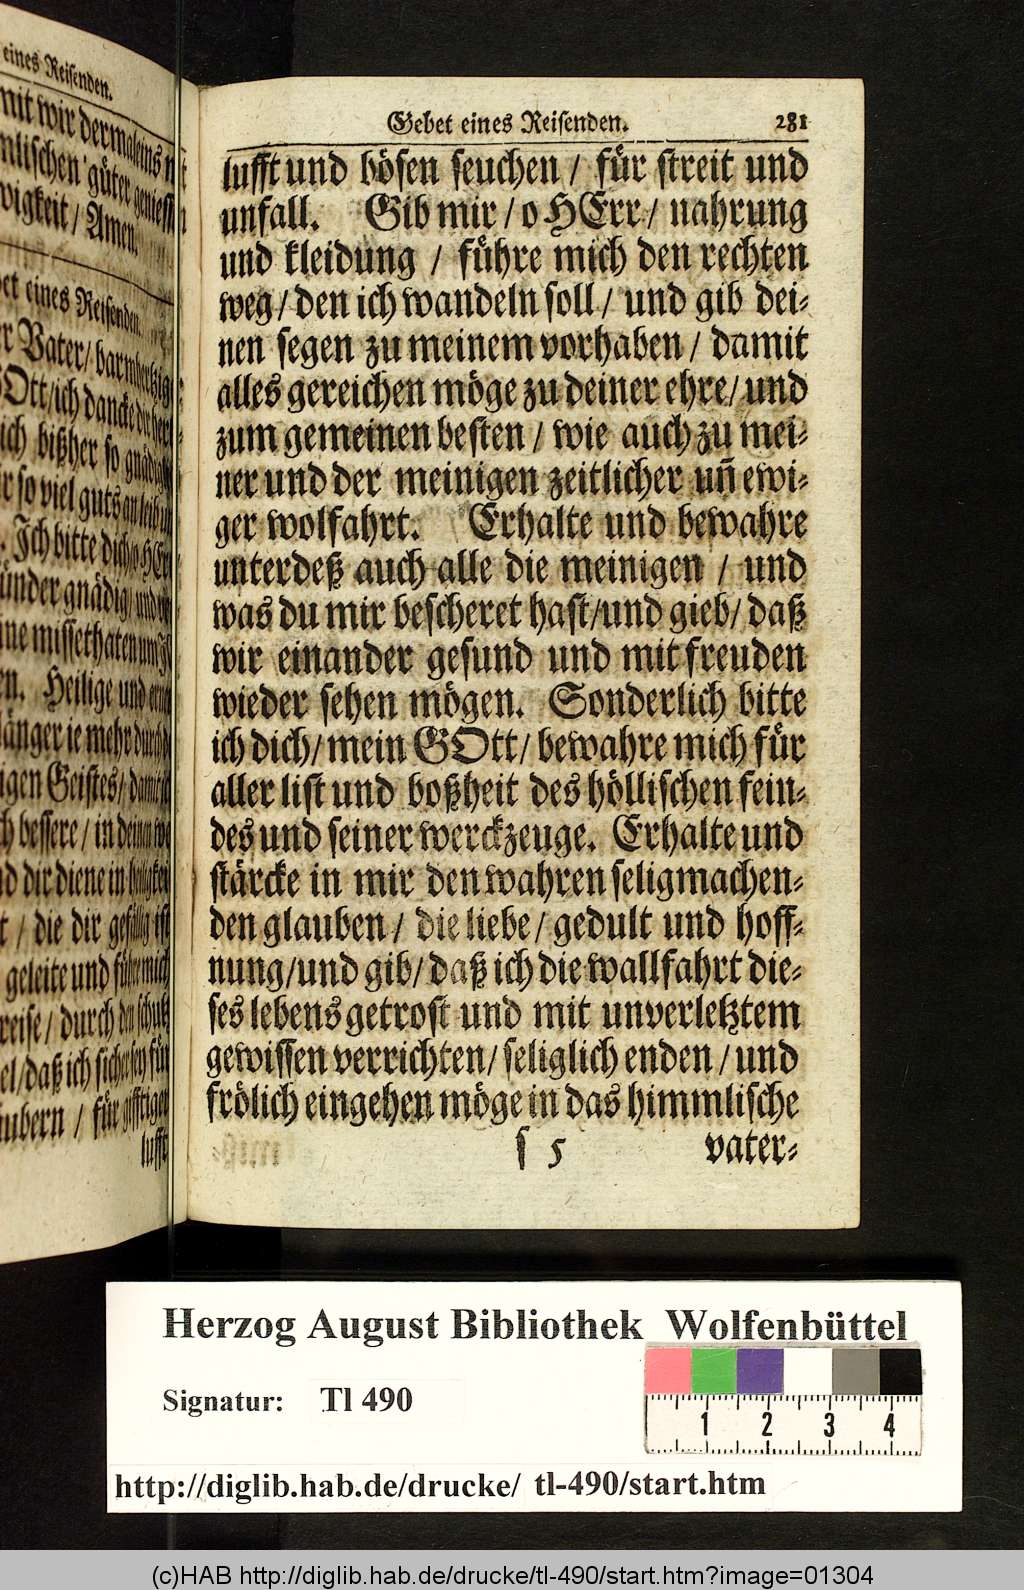 eines Reisenden.
mit wir dermaleins
güter
Amen.
eines Reisenden.
Vater/
GOtt/ich dancke dir
ich bißher so
so viel guts an leib
Ich bitte dich/o
gnädig/
missethaten um
Heilige und
länger ie mehr durch
Geistes/ damit
bessere/ in
dir diene in
/ die dir gefällig ist
geleite und führe mich
reise/ durch den schutz
daß ich sicher sey für
/ für gifftiger
lufft
Gebet eines Reisenden. 281
lufft und bösen seuchen / für streit und
unfall. Gib mir/ o HErr/ nahrung
und kleidung / führe mich den rechten
weg/ den ich wandeln soll/ und gib dei-
nen segen zu meinem vorhaben/ damit
alles gereichen möge zu deiner ehre/ und
zum gemeinen besten/ wie auch zu mei-
ner und der meinigen zeitlicher uñ ewi-
ger wolfahrt. Erhalte und bewahre
unterdeß auch alle die meinigen / und
was du mir bescheret hast/und gieb/ daß
wir einander gesund und mit freuden
wieder sehen mögen. Sonderlich bitte
ich dich/ mein GOtt/ bewahre mich für
aller list und boßheit des höllischen fein-
des und seiner werckzeuge. Erhalte und
stärcke in mir den wahren seligmachen-
den glauben/ die liebe/ gedult und hoff-
nung/und gib/ daß ich die wallfahrt die-
ses lebens getrost und mit unverletztem
gewissen verrichten/ seliglich enden / und
frölich eingehen möge in das himmlische
s 5 vater-
Herzog August Bibliothek Wolfenbüttel
Signatur: Tl 490
1 2 3 4
http://diglib.hab.de/drucke/ tl-490/start.htm
(c)HAB http://diglib.hab.de/drucke/tl-490/start.htm?image=01304